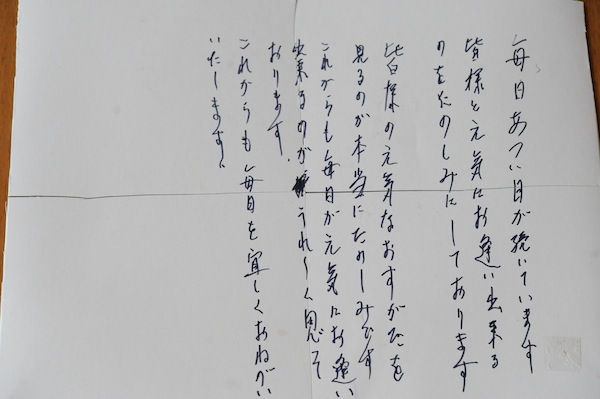 毎日あつい日が続いています
皆様と元気にお逢い出来る
のをたのしみにしております
皆様の元気なおすがたを
見るのが本当にたのしみです
これからも毎日が元気にお逢い
出来るのがうれしく思って
おります。
これからも毎日を宜しくおねがい
いたします。